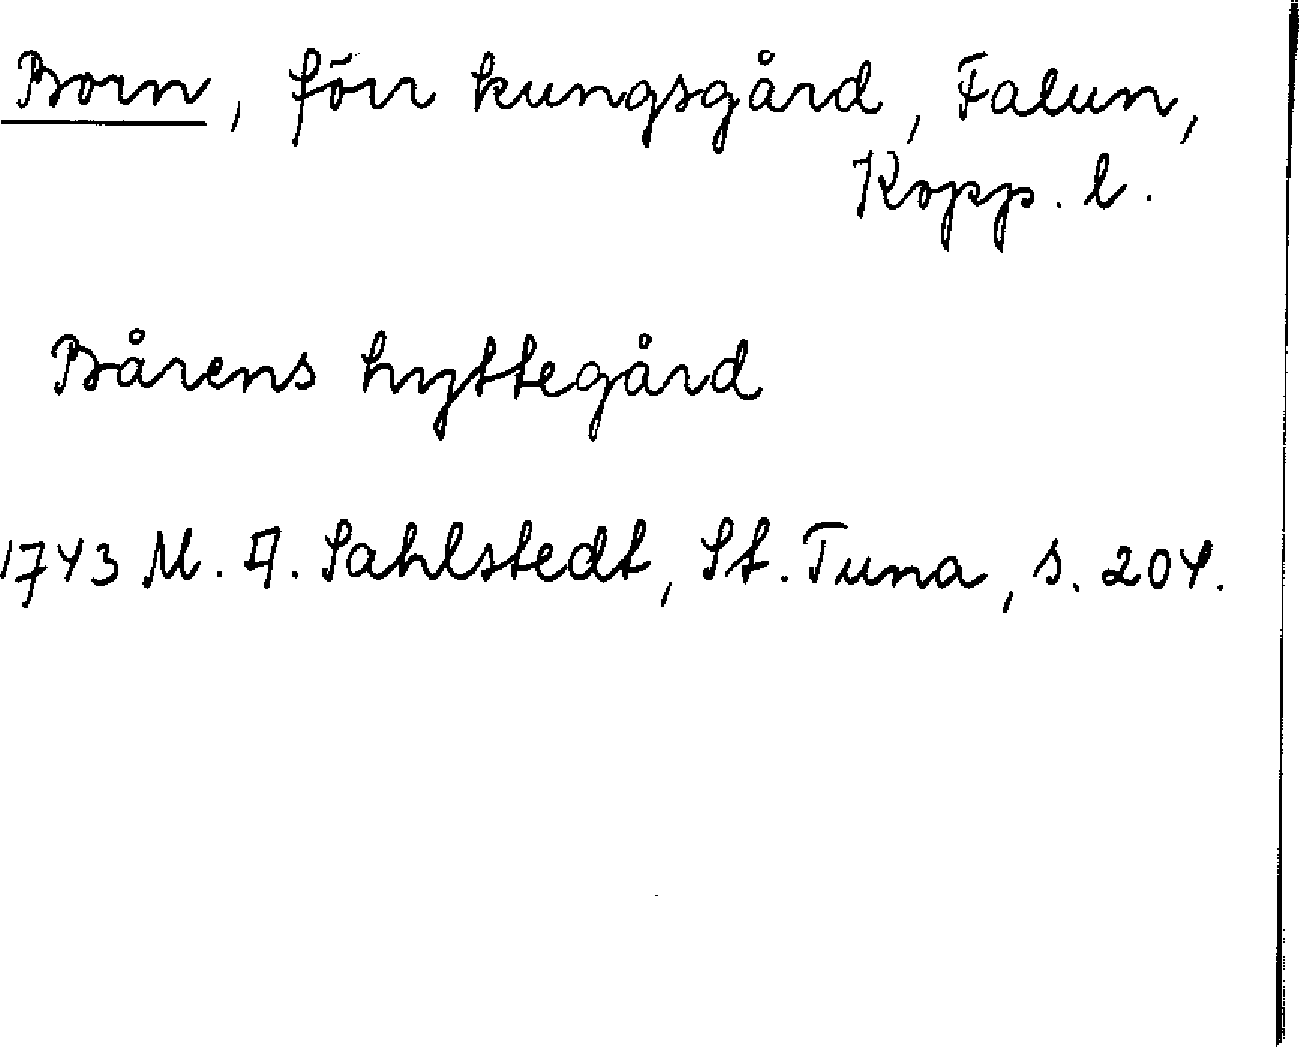 Born, förr kungsgård, Falun,
Kopp. l.
Bårens hyttegård
1743 M. A. Sahlstedt, St. Tuna, s. 204.